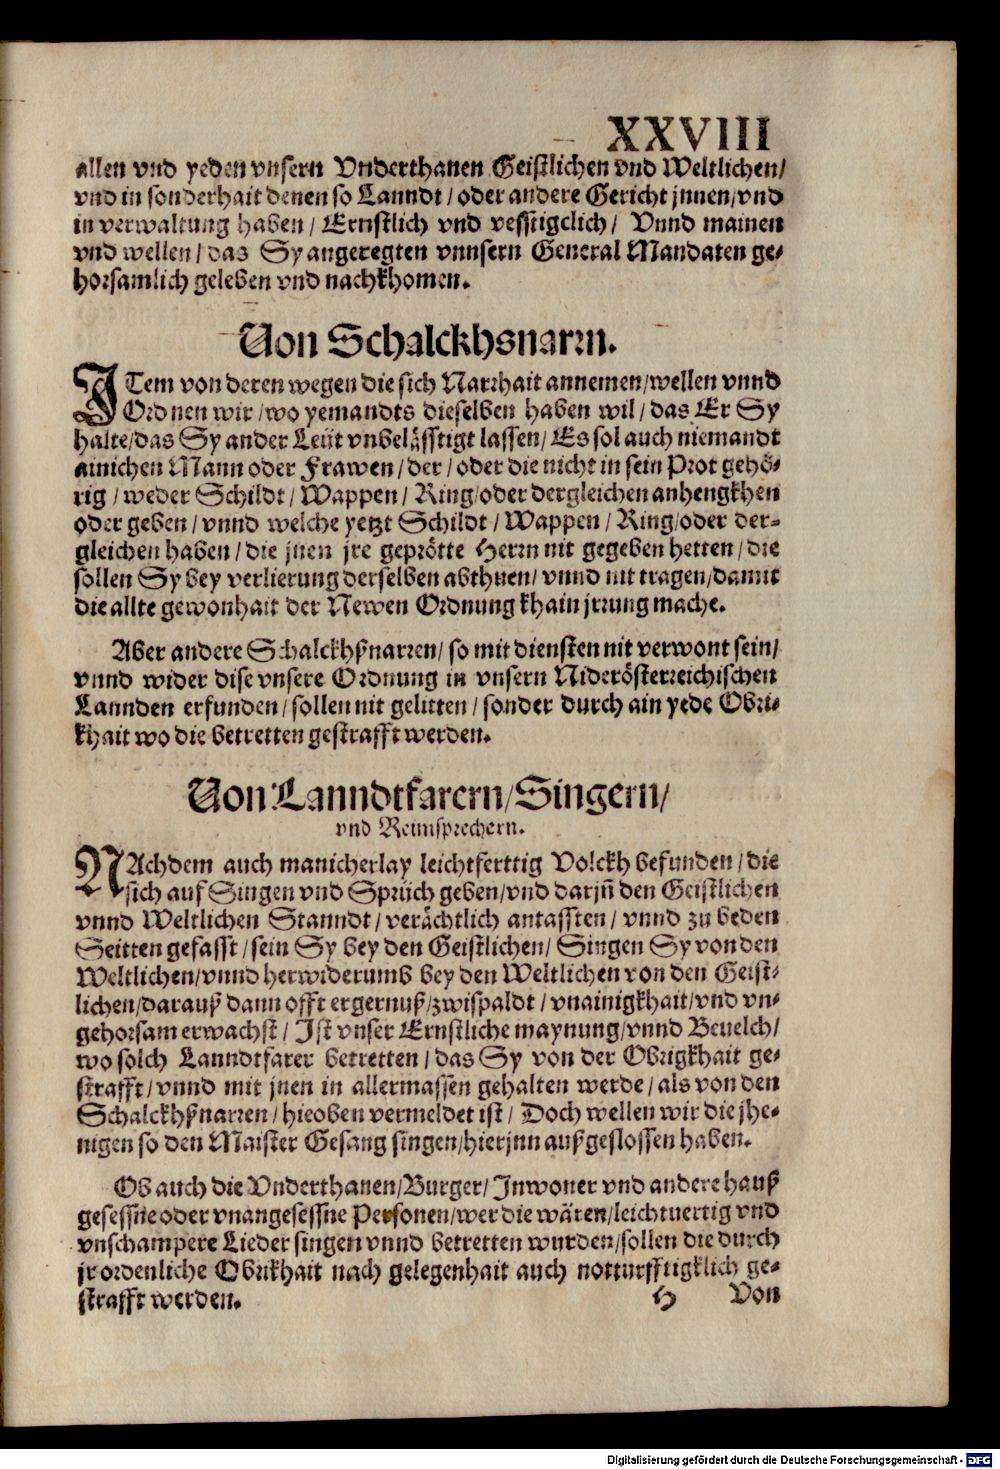 XXVIII
allen vnd yeden vnsern Vnderthanen Geistlichen vnd Weltlichen/
vnd in sonderhait denen so Lanndt / oder andere Gericht jnnen/vnd
in verwaltung haben / Ernstlich vnd vesstigclich / Vnnd mainen
vnd wellen / das Sy angeregten vnnsern General Mandaten ge-
horsamlich geleben vnd nachkhomen.
Von Schalckhsnarrn.
ITem von deren wegen die sich Narrhait annemen/wellen vnnd
Ordnen wir/wo yemandts dieselben haben wil / das Er Sy
halte/das Sy ander Leüt vnbelässtigt lassen/ Es sol auch niemandt
ainichen Mann oder Frawen / der / oder die nicht in sein Prot gehö-
rig / weder Schildt / Wappen / Ring/oder dergleichen anhengkhen
oder geben / vnnd welche yetzt Schildt / Wappen / Ring/oder der-
gleichen haben / die jnen jre geprötte Herrn nit gegeben hetten / die
sollen Sy bey verlierung derselben abthuen/ vnnd nit tragen/damit
die allte gewonhait der Newen Ordnung khain jrrung mache.
Aber andere Schalckhßnarren/ so mit diensten nit verwont sein/
vnnd wider dise vnsere Ordnung in vnsern Niderösterreichischen
Lannden erfunden / sollen nit gelitten / sonder durch ain yede Obri-
khait wo die betretten gestrafft werden.
Von Lanndtfarern/Singern/
vnd Reimsprechern.
NAchdem auch manicherlay leichtferttig Volckh befunden / die
sich auf Singen vnd Sprüch geben/vnd darjn̄ den Geistlichen
vnnd Weltlichen Stanndt / verächtlich antassten / vnnd zu beden
Seitten gefasst / sein Sy bey den Geistlichen/ Singen Sy von den
Weltlichen/vnnd herwiderumb bey den Weltlichen von den Geist-
lichen/darauß dann offt ergernuß/zwispaldt / vnainigkhait/vnd vn-
gehorsam erwachst / Ist vnser Ernstliche maynung/vnnd Beuelch/
wo solch Lanndtfarer betretten / das Sy von der Obrigkhait ge-
strafft / vnnd mit jnen in allermassen gehalten werde / als von den
Schalckhßnarren / hieoben vermeldet ist / Doch wellen wir die jhe-
nigen so den Maister Gesang singen/hierjnn außgeslossen haben.
Ob auch die Vnderthanen/Burger/Inwoner vnd andere hauß
gesessne oder vnangesessne Personen/wer die wären/leichtuertig vnd
vnschampere Lieder singen vnnd betretten wurden/sollen die durch
jr ordenliche Obrikhait nach gelegenhait auch notturfftigklich ge-
strafft werden.
H Von
Digitalisierung gefördert durch die Deutsche Forschungsgemeinschaft - DFG